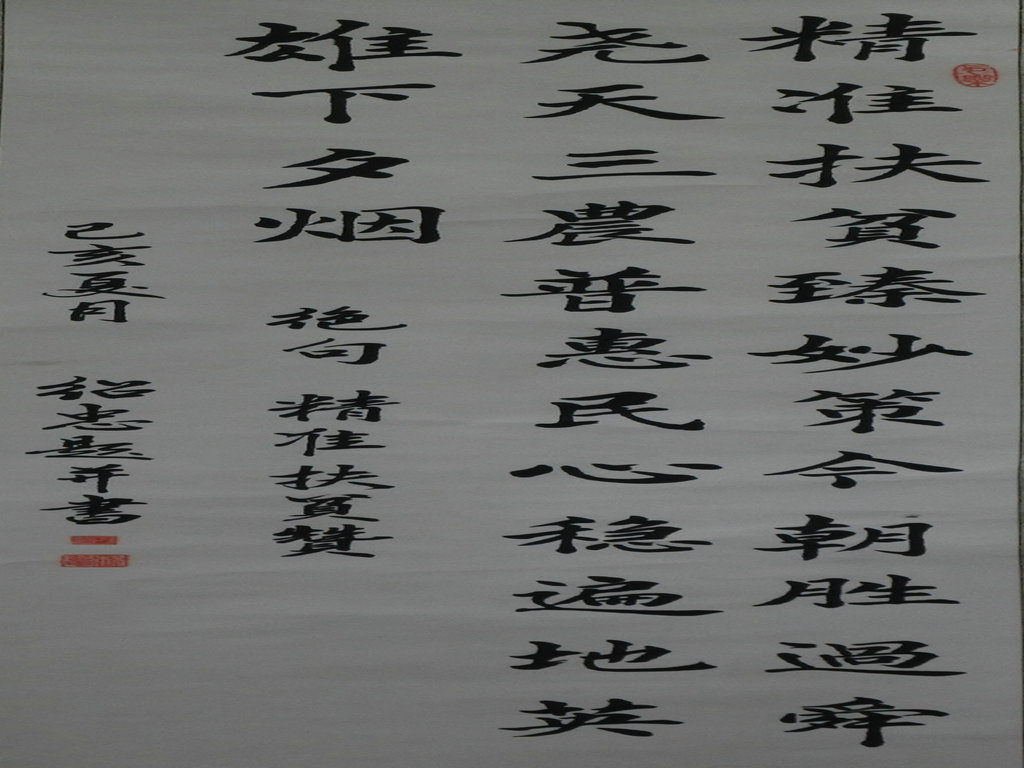 精准扶貧臻妙策今朝胜過舜
尧天三農普惠民心稳遍地英
雄下夕烟
绝句
精准扶貧贊
己亥夏月
绍忠题并書